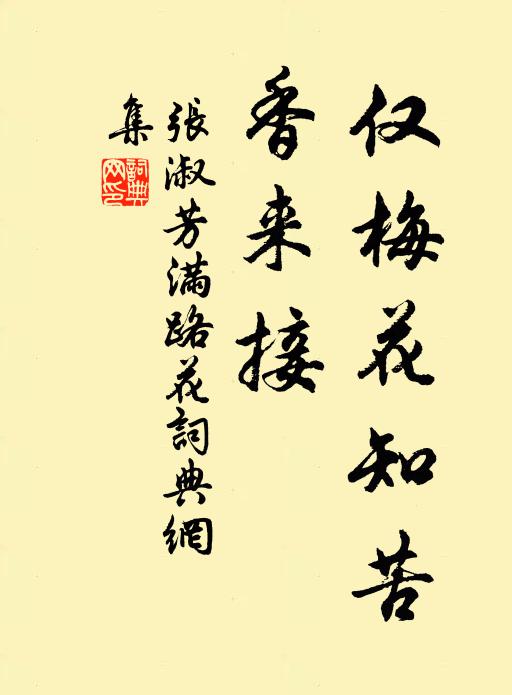 仅梅花知苦
香来接
張淑芳满路花詞典網
集
詞典网印